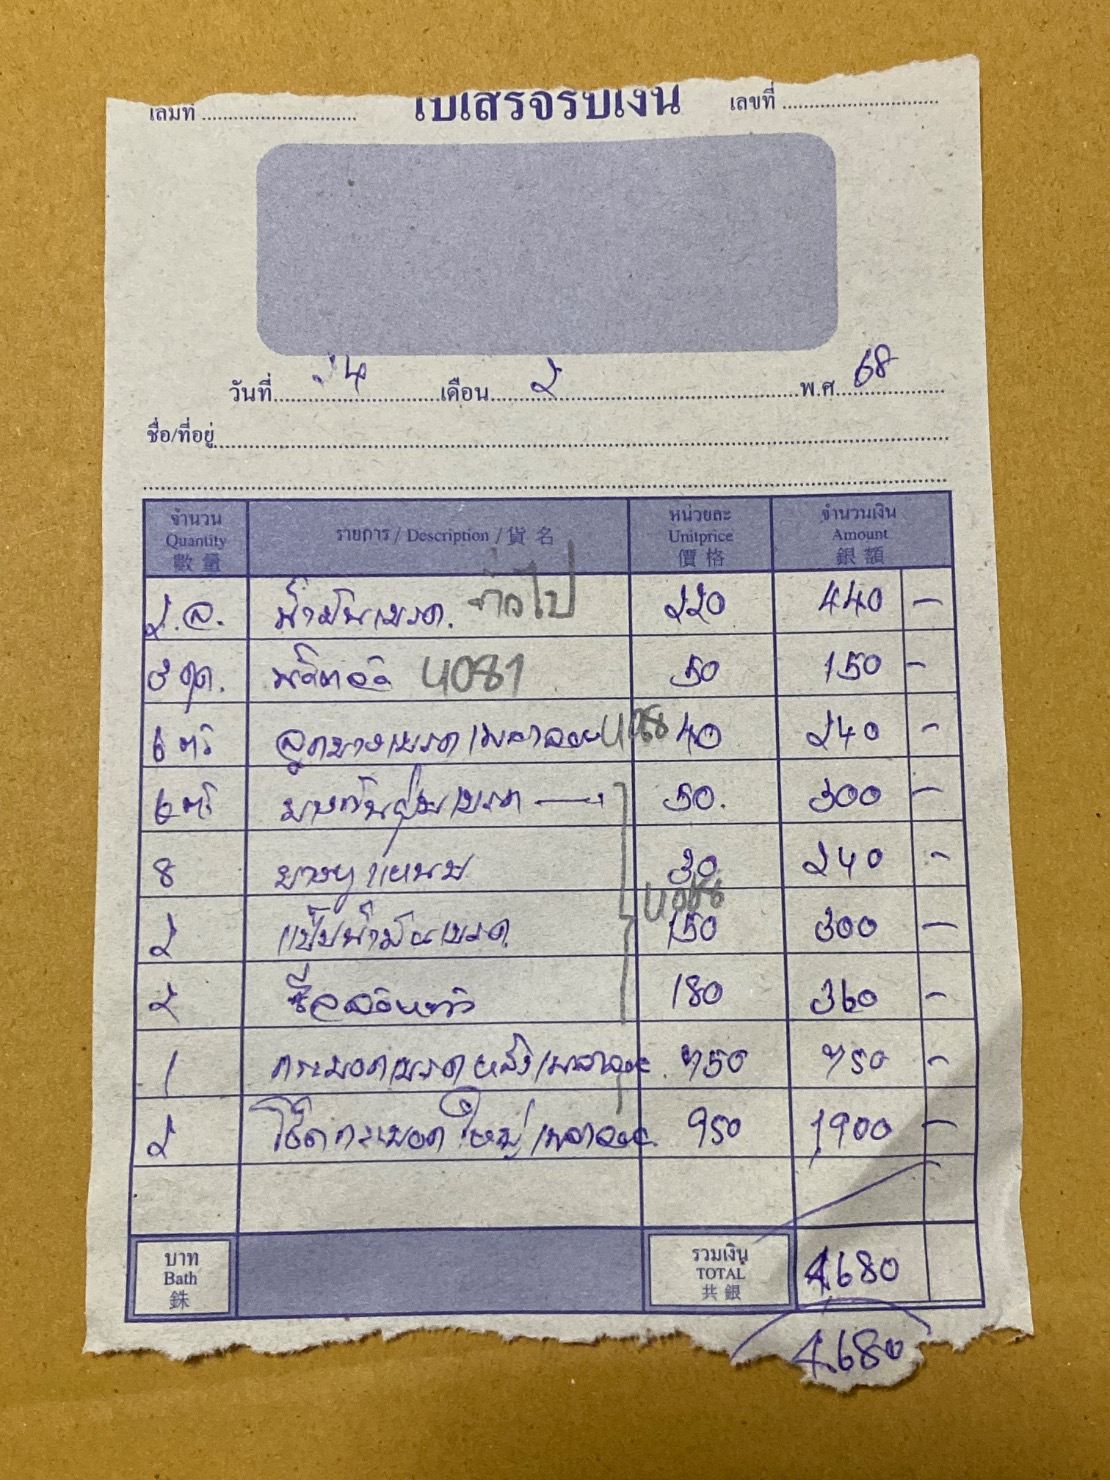 เล่มที่ ใบเสร็จรับเงิน เลขที่
วันที่ 24 เดือน 2 พ.ศ. 68
ชื่อ/ที่อยู่
จำนวน รายการ / Description / 貨 名 หน่วยละ จำนวนเงิน
Quantity Unitprice Amount
數 量 價 格 銀 額
2.ล. น้ำมันเบรค. ทั่วไป 220 440 -
3 ชุด. 4081 50 150 -
6 ตัว ลูกยางเบรค 408 40 240 -
6 ตัว ยางกันฝุ่นเบรค 50. 300 -
8 30 240 -
4088
2 แป๊ปน้ำมันเบรค 150 300 -
2 ซีล 180 360 -
1 กระบอกเบรคหลัง 750 750 -
2 กระบอกใหญ่ 950 1900 -
บาท รวมเงิน 4680
Bath TOTAL
銖 共 銀
4680